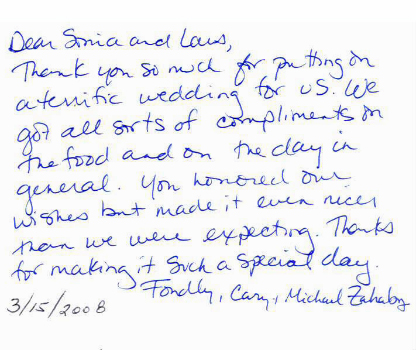 Dear Sonia and Laws,
Thank you so much for putting on
a terrific wedding for us. We
got all sorts of compliments on
the food and on the day in
general. You honored our
wishes but made it even nicer
than we were expecting. Thanks
for making it such a special day.
Fondly, Cary + Michael Zahaby
3/15/2008